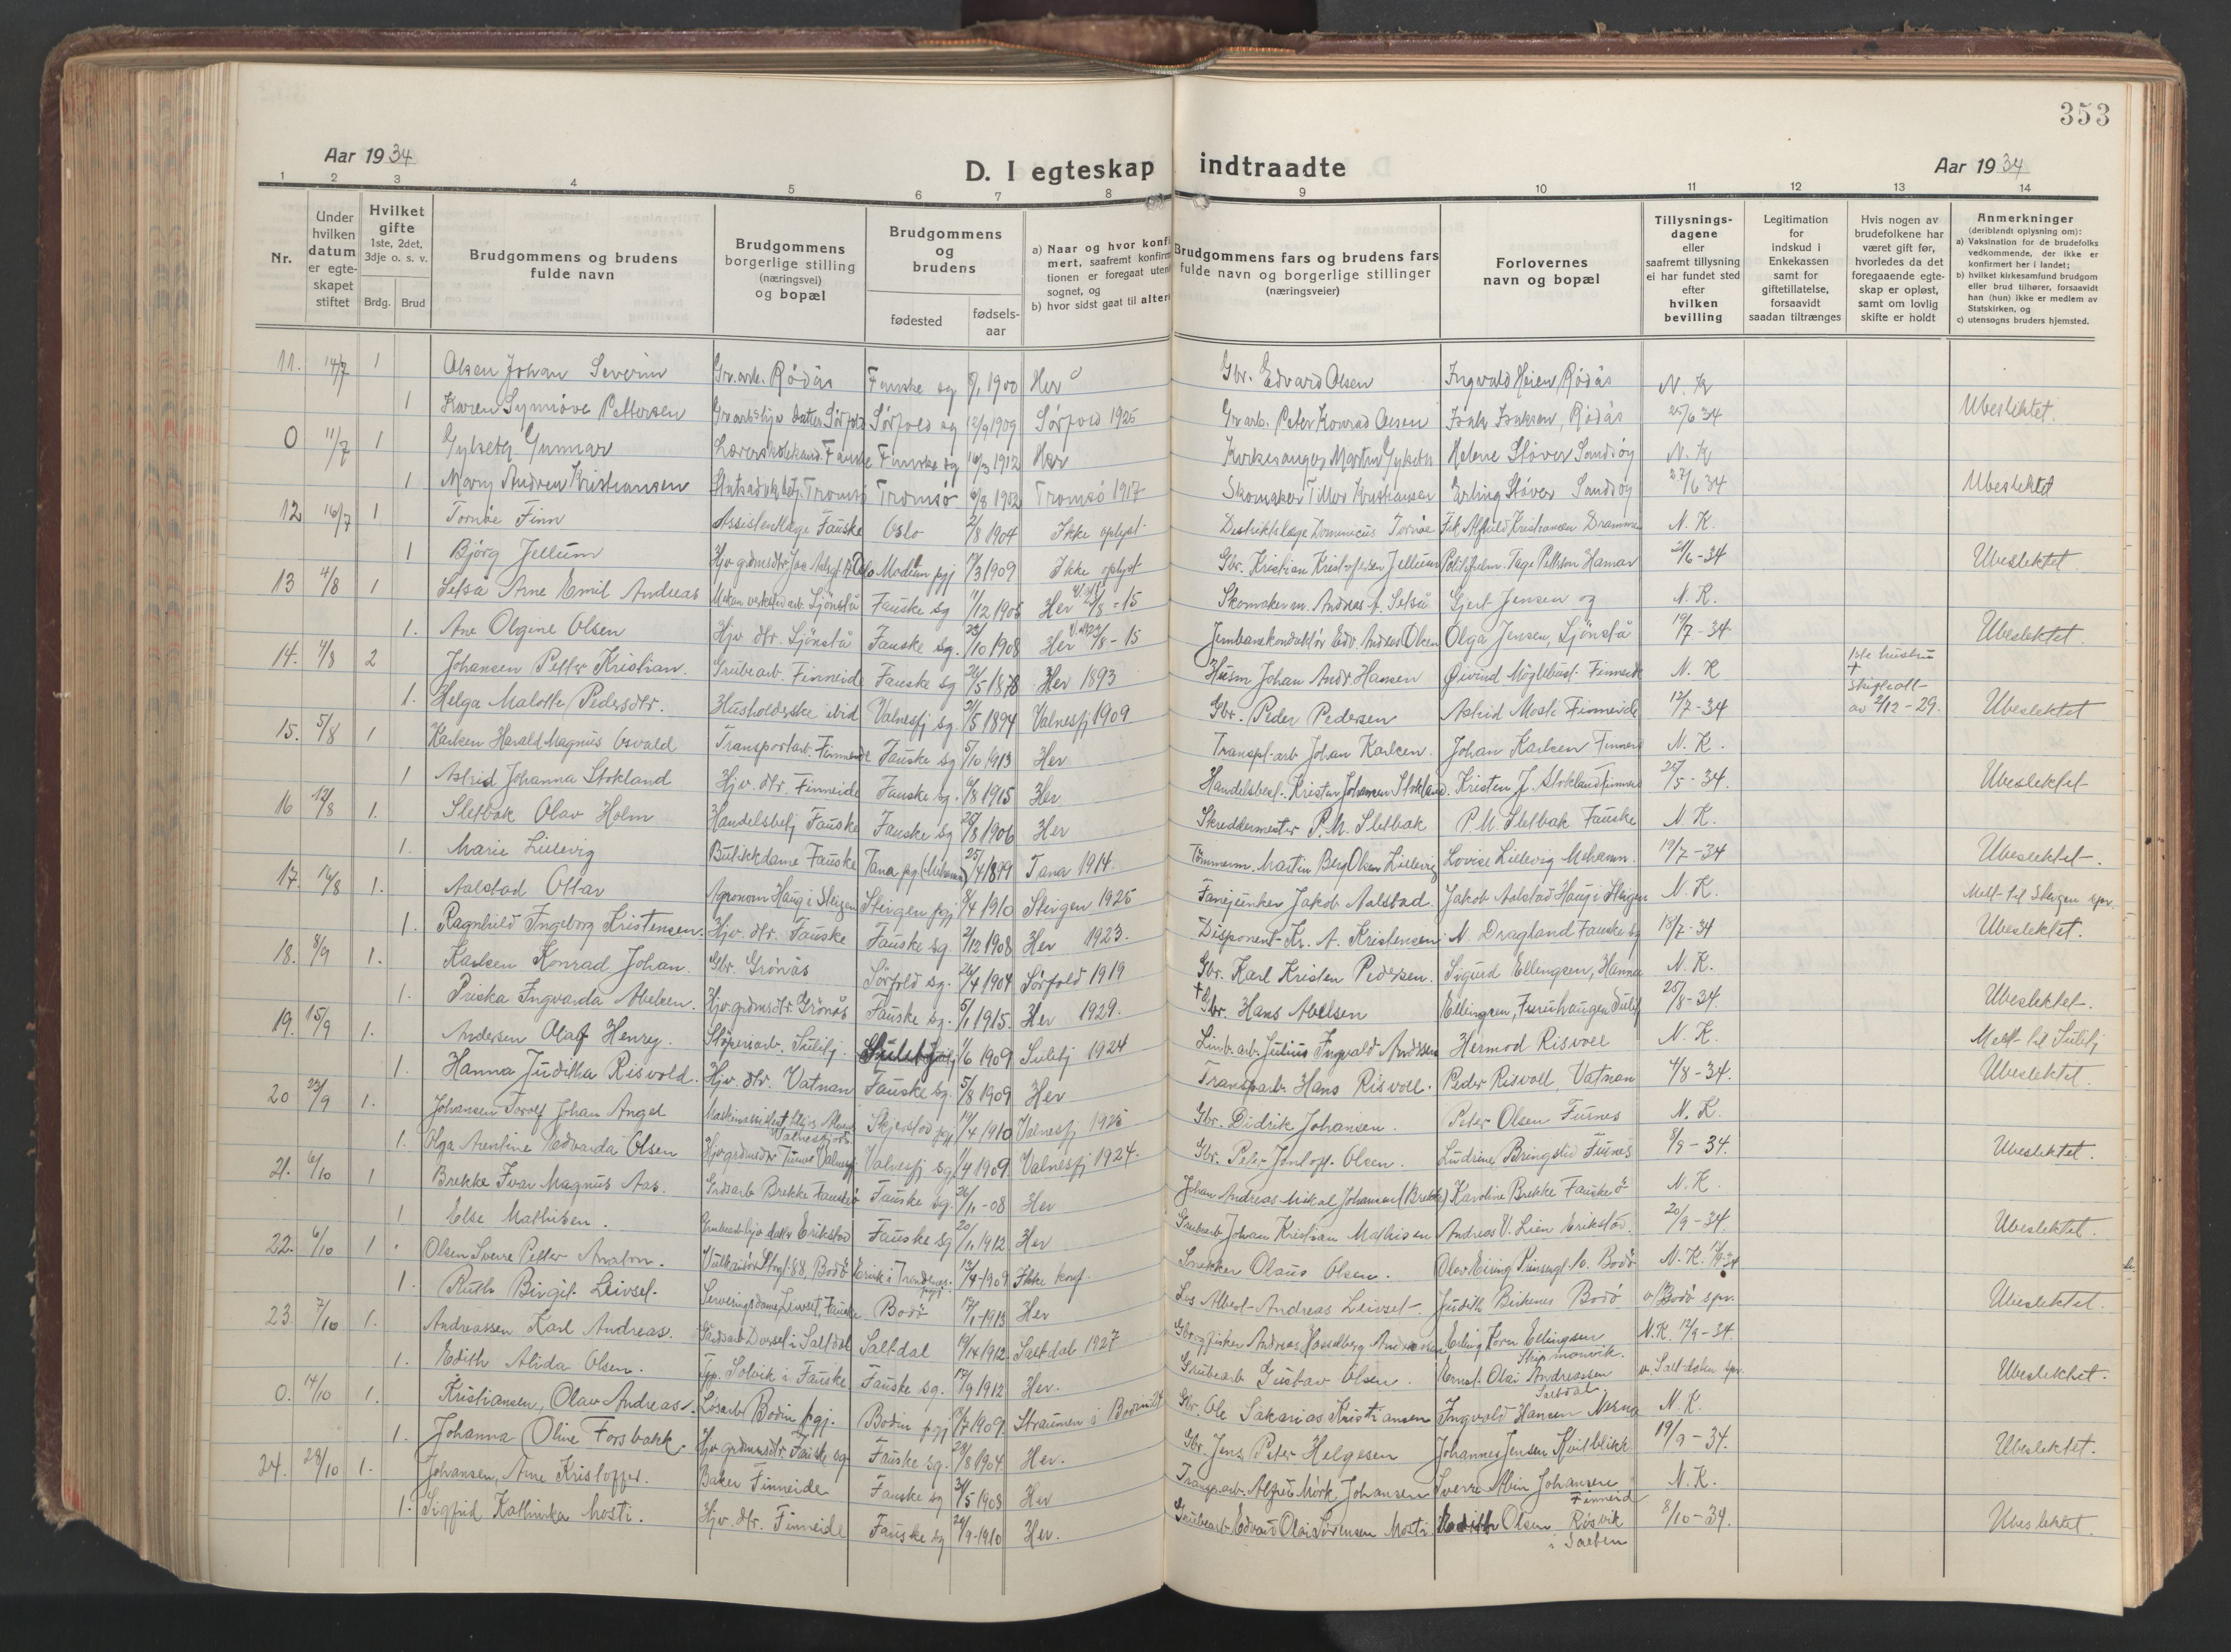 353
Aar 1934
D. I egteskap indtraadte
Aar 1934
1 2 3 4 5 6 7 8 9 10 11 12 13 14
Nr.
Under hvilken datum er egteskapet stiftet
Hvilket gifte 1ste, 2det, 3dje o. s. v.
Brdg. Brud
Brudgommens og brudens fulde navn
Brudgommens borgerlige stilling (næringsvei) og bopæl
Brudgommens og brudens
fødested
fødselsaar
a) Naar og hvor konfirmert, saafremt konfirm tionen er foregaat uten sognet, og
b) hvor sidst gaat til alter
Brudgommens fars og brudens fars fulde navn og borgerlige stillinger (næringsveier)
Forlovernes navn og bopæl
Tillysningsdagene eller saafremt tillysning ei har fundet sted efter hvilken bevilling
Legitimation for indskud i Enkekassen samt for giftetillatelse, forsaavidt saadan tiltrænges
Hvis nogen av brudefolkene har været gift før, hvorledes da det foregaaende egteskap er opløst, samt om lovlig skifte er holdt
Anmerkninger (deriblandt oplysning om):
a) Vaksination for de brudefolks vedkommende, der ikke er konfirmert her i landet;
b) hvilket kirkesamfund brudgom eller brud tilhører, forsaavidt han (hun) ikke er medlem av Statskirken, og
c) utensogns bruders hjemsted.
11. 14/7 1 Olsen Johan Severin Gr.arb. Rödås Fauske sg 1900 Her Gbr. Edvard Olsen Ingvald Heien Rödås N. K
1 Karen Synnöve Pettersen Sørfold sg 12/9 1909 Sørfold 1925 Gr.arb. Peter Konrad Olsen Isak Isaksen, Rödås 25/6 34 Ubeslektet.
0 11/7 1 Gylseth Gunnar Fauske Fauske sg 16/3 1912 Her Kirkesanger Martin Gylseth Helene Støver Sandsøy N. K
1 Mary Andrea Kristiansen Tromsö Tromsö 1902 Tromsö 1917 Skomaker Kristiansen Erling Støver Sandsøy 27/6 34 Ubeslektet
12 16/7 1 Tornöe Finn Assistentlæge Fauske Oslo 2/8 1904 Ikke oplyst Distriktslæge Dominicus Tornöe Frk. Alfhild Kristiansen Drammen N. K.
1 Bjørg Jellum Modum pgj 17/3 1909 Ikke oplyst Gbr. Kristian Kristoffersen Jellum Tage Petterson Hamar 21/6-34 Ubeslektet.
13 4/8 1 Setså Arne Emil Andreas Sjönstå Fauske sg 11/12 1905 Her Skomakerm. Andreas A. Setså Gjert Jensen og N. K.
1. Ane Olgine Olsen Hjv. dtr. Sjönstå Fauske sg. 23/10 1908 Her Jernbanekonduktör Edv. Andreas Olsen Olga Jensen, Sjönstå 19/7-34 Ubeslektet.
14. 4/8 2 Johansen Petter Kristian. Grubearb. Finneide Fauske sg 26/5 1878 Her 1893 Husm Johan Andr Hansen Øivind Möglebust. Finneide N. K 1ste hustru + skifteatt- av 2/12-29.
1. Helga Malotte Pedersdtr. Husholderske ibid Valnesfj sg. 31/5 1894 Valnesfj 1909 Gbr. Peder Pedersen Astrid Mosti Finneide 12/7-34 Ubeslektet
15. 5/8 1 Karlsen Harald Magnus Osvald Transportarb. Finneide Fauske sg 5/10 1913 Her Transpt-arb Johan Karlsen. Johan Karlsen Finneid N. K.
1 Astrid Johanna Stokland Hjv. dtr. Finneide Fauske sg. 6/8 1915 Her Handelsbest. Kristen Johansen Stokland. Kristen J. Stokland Finneid 25/5-34. Ubeslektet
16 12/8 1. Sletbak Olav Holm Handelsbetj Fauske Fauske sg 28/8 1906 Her Skreddermester P.M. Sletbak P.M. Sletbak Fauske N. K.
1. Marie Lillevig Butikkdame Fauske Tana pgj (Mehamn) 25/4 1899 Tana 1914. Tömmerm. Martin Berg Olsen Lillevig Lovise Lillevig Mehamn. 19/7-34 Ubeslektet-.
17. 12/8 1. Aalstad Ottar Agronom Haug i Steigen Steigen pgj 8/4 1910 Steigen 1925 Fanejunker Jakob Aalstad. Jakob Aalstad Haug i Steigen N. K. Melt til Steigen spr.
1. Ragnhild Ingeborg Kristensen. Hjv. dtr. Fauske Fauske sg 2/12 1908 Her 1923. Disponent Kr. A. Kristensen N. Dragland Fauske sg 18/7-34 Ubeslektet.
18. 8/9 1. Karlsen Konrad Johan. Gbr. Grönås Sörfold sg. 26/4 1904 Sörfold 1919 Gbr. Karl Kristen Pedersen. Sigurd Ellingsen, Hanna N. K.
1. Priska Ingvarda Abelsen. Hjv. grdmsdtr. Grönås Fauske sg. 5/1 1915. Her 1929. + Gbr. Hans Abelsen Ellingsen, Furuhaugen Sulitj 25/8-34. Ubeslektet-.
19. 15/9 1. Andersen Olaf Henry. Stöperiarb. Sulitj. 1/6 1909 Sulitj 1924 Julius Ingvald Andersen Hermod Risvoll N. K. Melt til Sulitj
1. Hanna Juditha Risvold. Hjv. dtr. Vatnan Fauske sg. 5/8 1909 Her Transparb. Hans Risvoll. Peder Risvoll, Vatnan 4/8-34. Ubeslektet.
20 23/9 1. Johansen Torolf Johan Angel Valnesfjord Skjerstad pgj 17/4 1910 Valnesfj 1925 Gbr. Didrik Johansen. Peter Olsen Furnes N. K.
1. Olga Arentine Edvarda Olsen Valnesfj sg 1/4 1909. Valnesfj 1924. Gbr. Peter Olsen. Ludrine Bringsli Furnes 8/9-34. Ubeslektet.
21. 6/10 1 Brekke Ivar Magnus Aas. Grdsarb Brekke Fauske Fauske sg. 26/11-08 Her Johan Andreas Mikal Johansen (Brekke) Karoline Brekke Fauske N. K.
1 Else Mathisen. Erikstad Fauske sg 20/11 1912 Her Grubearb Johan Kristian Mathisen Andreas V. Lien Erikstad. 20/9-34. Ubeslektet.
22. 6/10 1. Olsen Sverre Petter Bodö 1909 Ikke konf. Snekker Olaus Olsen. Bodö N. K.
1. Ruth Birgit Leivset. Serveringsdame, Leivset, Fauske Bodö 17/1-1913 Her Albert Andreas Leivset. Judith Birkenes Bodö v/Bodö spr. Ubeslektet.
23. 7/10 1. Andreassen Karl Andreas. Saltdal Saltdal 1912. Saltdal 1927 Gbr. og fisker Andreas Andreassen Erling Ellingsen N.K. 12/9-34
1. Edith Alida Olsen. Solvik i Fauske Fauske sg. 17/9 1912 Her. Grubearb Gustav Olsen. Ernst Olai Andreassen Saltdal. v. Saltdalen spr. Ubeslektet.
0. 14/10 1. Kristiansen, Olav Andreas. Løsarb Bodin pgj. Bodin pgj 1909. Straumen i Bodin 24 Gbr. Ole Sakarias Kristiansen Ingvald Hansen N. K.
1. Johanna Oline Forsbakk. Hjv grdmsdtr. Fauske sg. Fauske sg. 23/8 1904 Her. Gbr. Jens Peter Helgesen Johannes Jensen Kvitblikk 19/9-34. Ubeslektet.
24. 28/10 1. Johansen, Arne Kristoffer. Baker Finneide Fauske sg 31/5 1908 Her Transp.arb. Alfred Mörk Johansen Sverre Albin Johansen Finneid N. K.
1. Sigfrid Kathinka Mosti. Hjv. dtr. Finneide Fauske sg 29/9-1910 Her. Grubearb. Edvard Olai Sörensen Mosti. Edith Olsen Risvik i Salten 8/10-34. Ubeslektet.